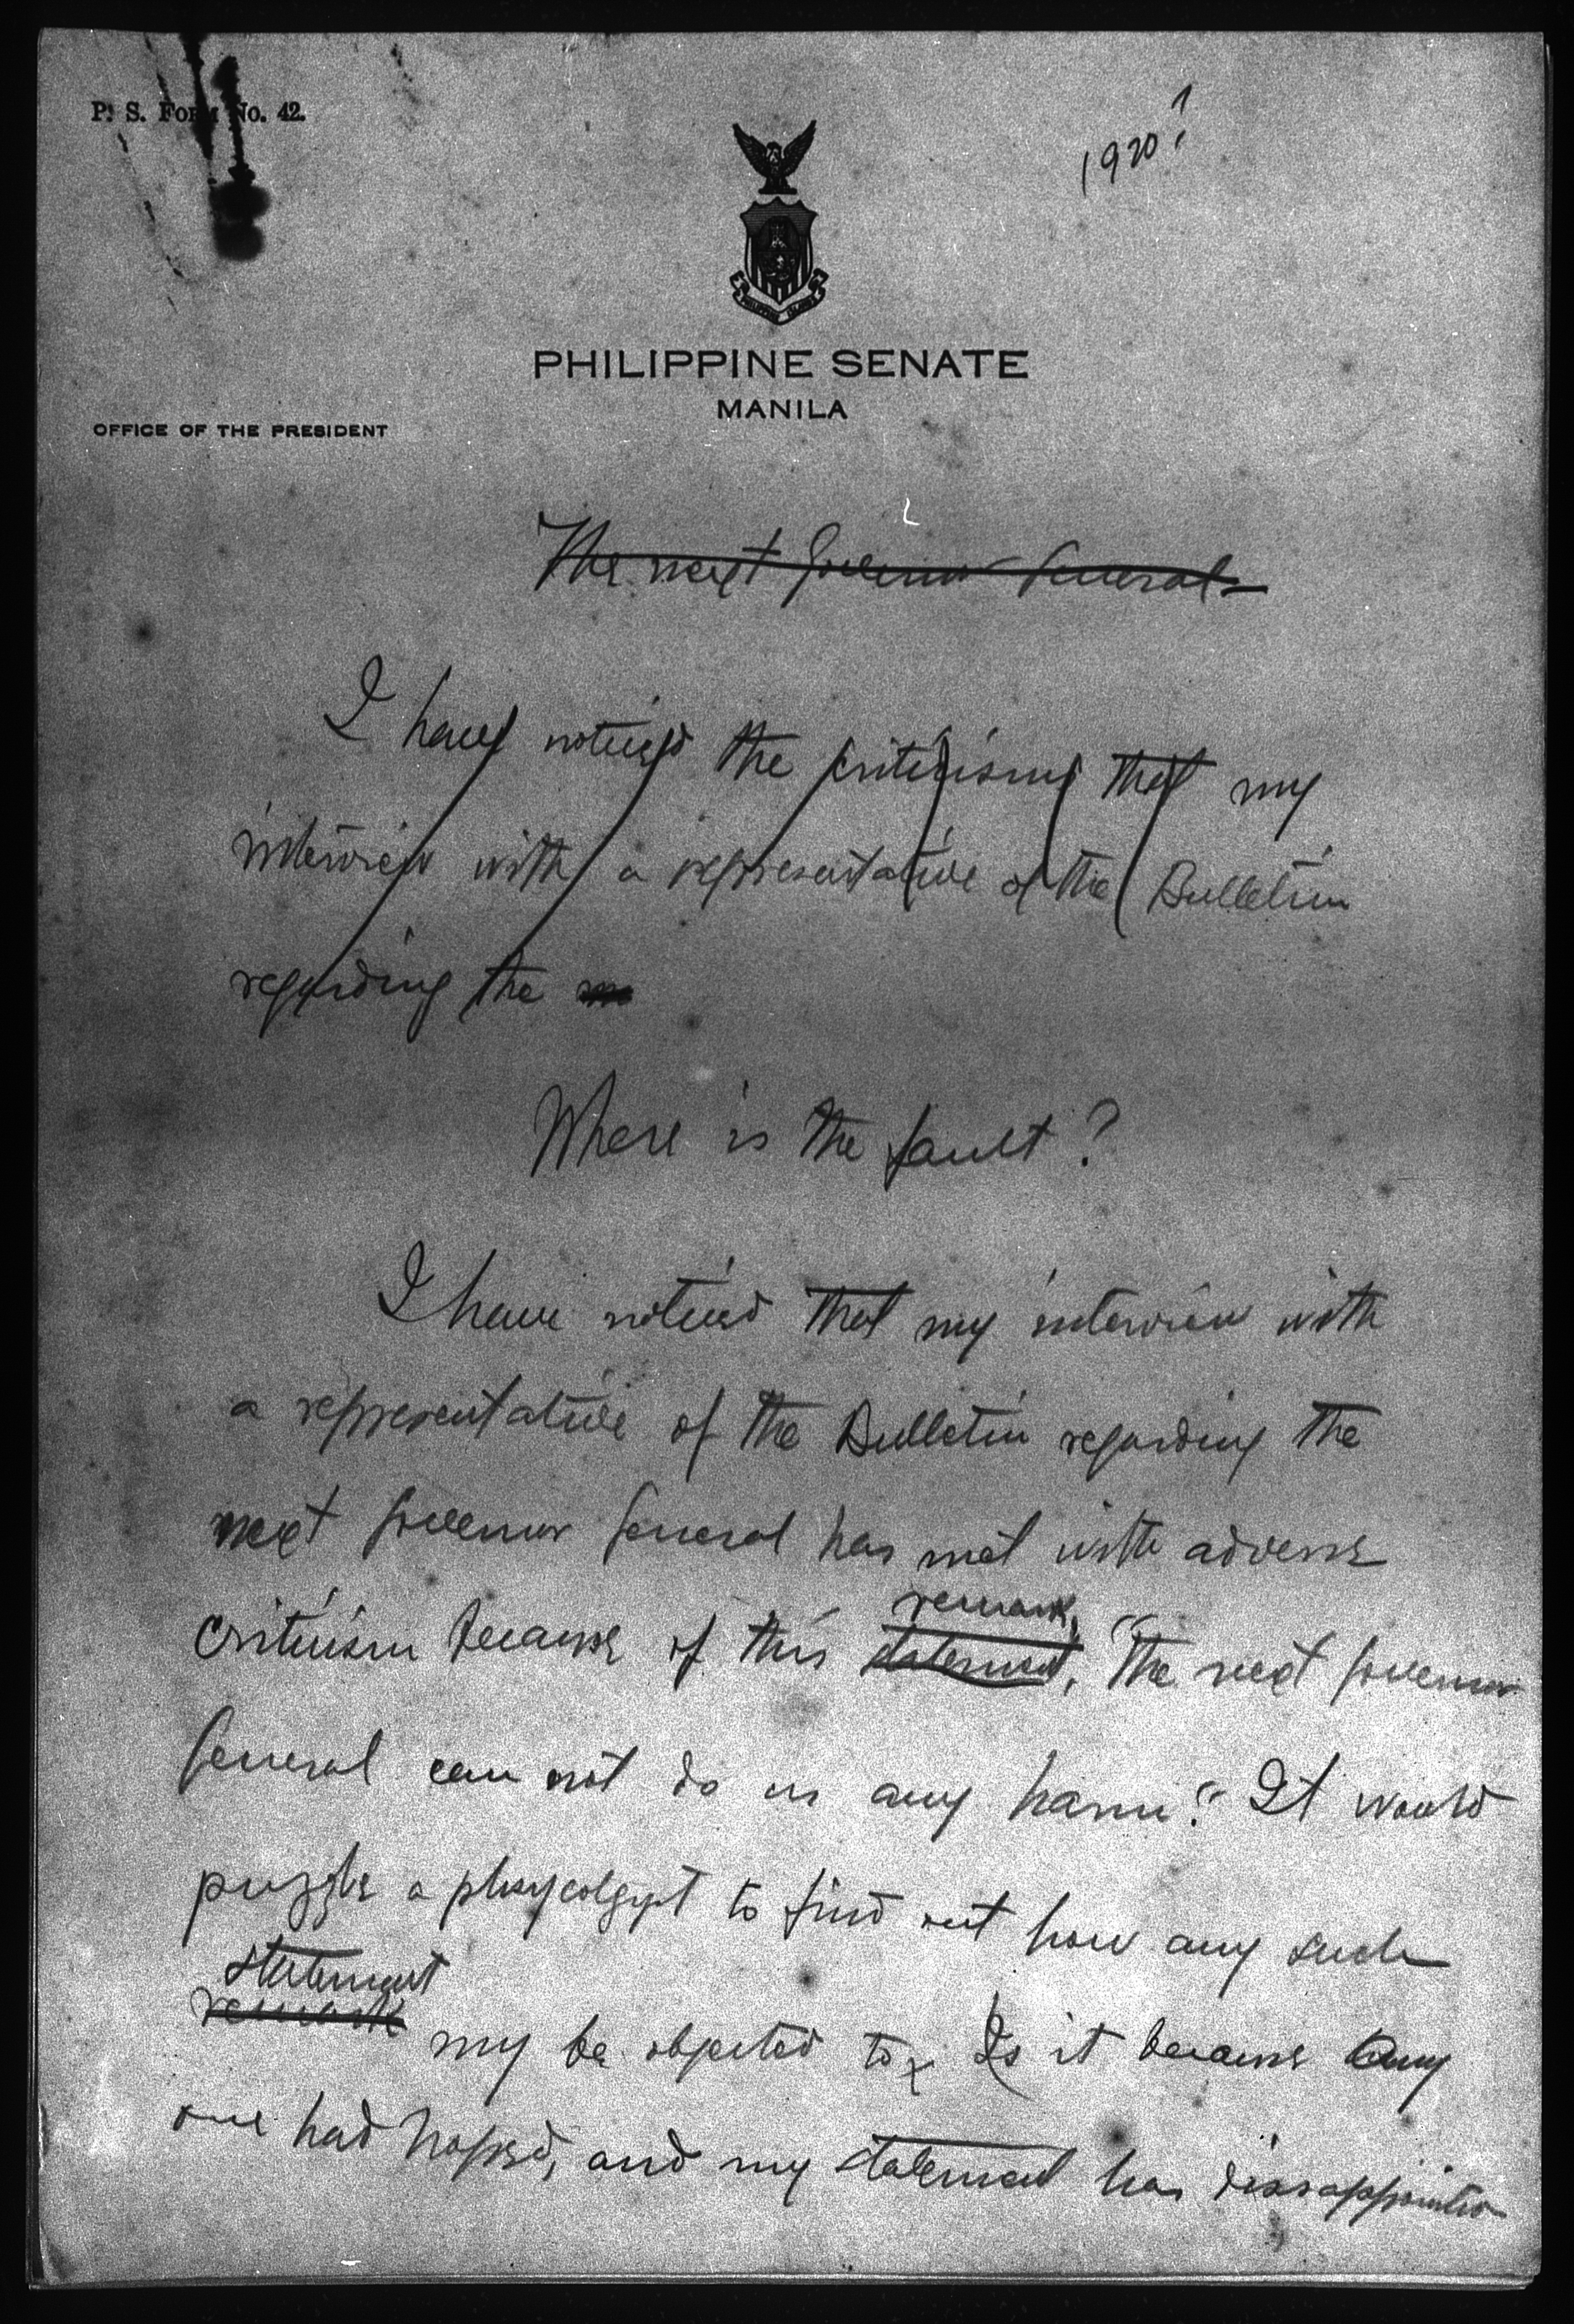 P. S. Form No. 42.
1920?
PHILIPPINE SENATE
MANILA
OFFICE OF THE PRESIDENT
The next Governor General
I have noticed the critisisms that my
interview with a representative of the Bulletin
regarding the
Where is the fault?
I have noticed that my interview with
a representative of the Bulletin regarding the
next Governor General has met with adverse
remark,
criticism because of this statement, "The next Governor
General can not do us any harm". It would
puzzle a phsycolgyst to find out how any such
statement
remark my be objected to. Is it because any
one had hoped, and my statement has dissappointed